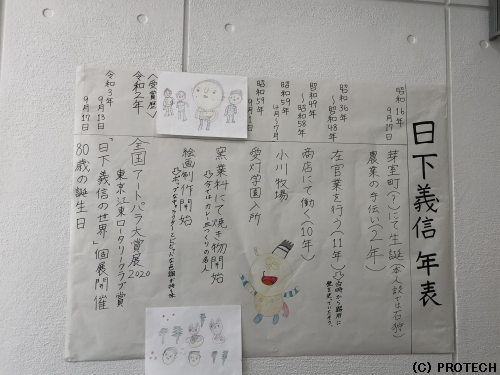 日下義信 年表
昭和16年
9月17日
芽室町(?)にて生誕(本人談では石狩)
農業の手伝い(2年)
昭和36年
〜昭和48年
左官業を行う(11年)
昭和49年
〜昭和58年
商店にて働く(10年)
昭和59年
4月〜7月
小川牧場
昭和59年
9月1日
愛灯学園入所
窯業科にて焼き物開始
絵画制作開始
〈受賞歴〉
令和2年
全国アートパラ大賞展2020
東京江東ロータリークラブ賞
令和3年
9月13日
「日下義信の世界」個展開催
9月17日
80歳の誕生日
(C) PROTECH